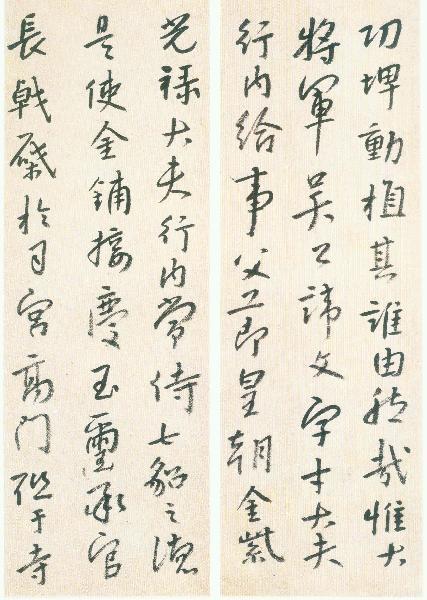 功埤動植其誰由然哉惟大
將軍吳公諱文字才大夫
行內給事父節皇朝金紫
光祿大夫行內常侍七貂之
是使金鋪接慶玉璽承官
長戟於司宮高門于寺